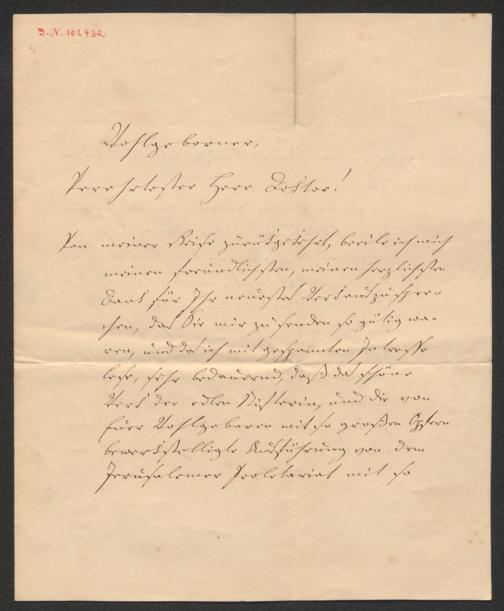 I.N. 102432
Wohlgeborner,
Verehrtester Herr Doktor!
Von meiner Reise zurückgekehrt, beeile ich mich
meinen freundlichsten, meinen herzlichsten
Dank für Ihr neuestes Werk auszuspre-
chen, das Sie mir zu senden so gütig wa-
ren, und das ich mit gespanntem Interesse
lese, sehr bedauernd, daß das schöne
Werk der edlen Stifterin, und die von
Euer Wohlgeboren mit so großen Opfern
bewerkstelligte Ausführung von dem
Jerusalemer Proletariat mit so